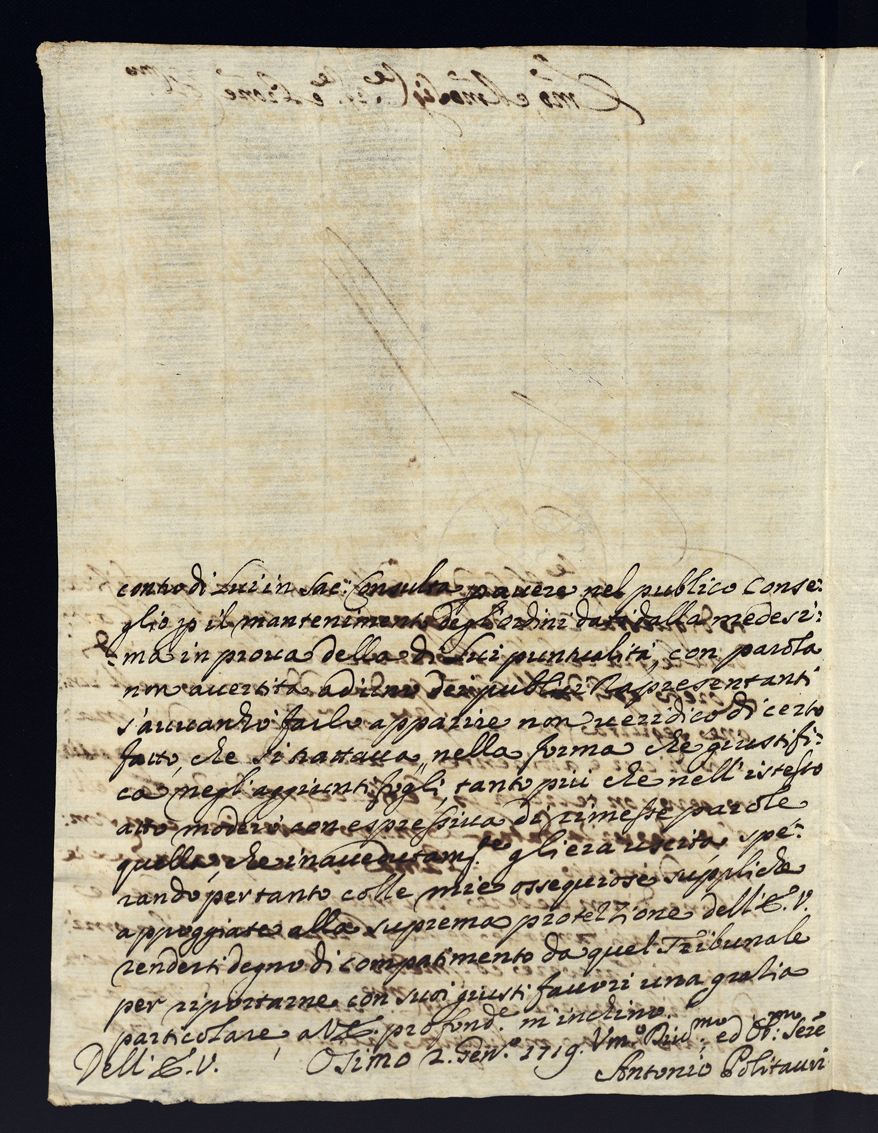 contro di Lui in Sac: Consulta, p avere nel publico Conse:
glio p il mantenimento degl'ordini dati dalla medesi:
ma in prova della di Lui puntualità, con parola
non avertita ad uno dei publici Rapresentanti
s'avvanzò farlo apparire non veridico di certo
fatto, che si trattava, nella forma che giustifi:
ca negl'aggiunti fogli, tanto più che nell'istesso
atto moderò con espressiva di rimesse parole
quella, che inavedutam.te gli era uscita, spe:
rando pertanto colle mie ossequiose suppliche
appoggiate alla suprema protezzione dell'E. V.
rendersi degno di compatimento da quel Tribunale
per riportarne con suoi giusti favori una grazia
particolare, a V. E. profond.e m'inchino.
Dell'E. V. Osimo 2. Gen.o 1719. Um.o Div.mo ed Ob.mo Ser.e
Antonio Politauri